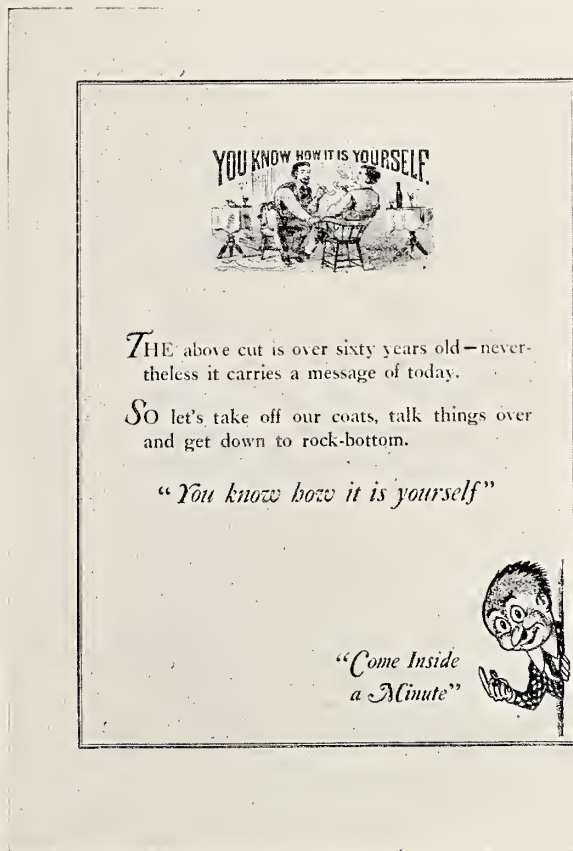 YOU KNOW HOW IT IS YOURSELF.
THE above cut is over sixty years old—never-
theless it carries a message of today.
SO let's take off our coats, talk things over
and get down to rock-bottom.
"You know how it is yourself"
"Come Inside
a Minute"